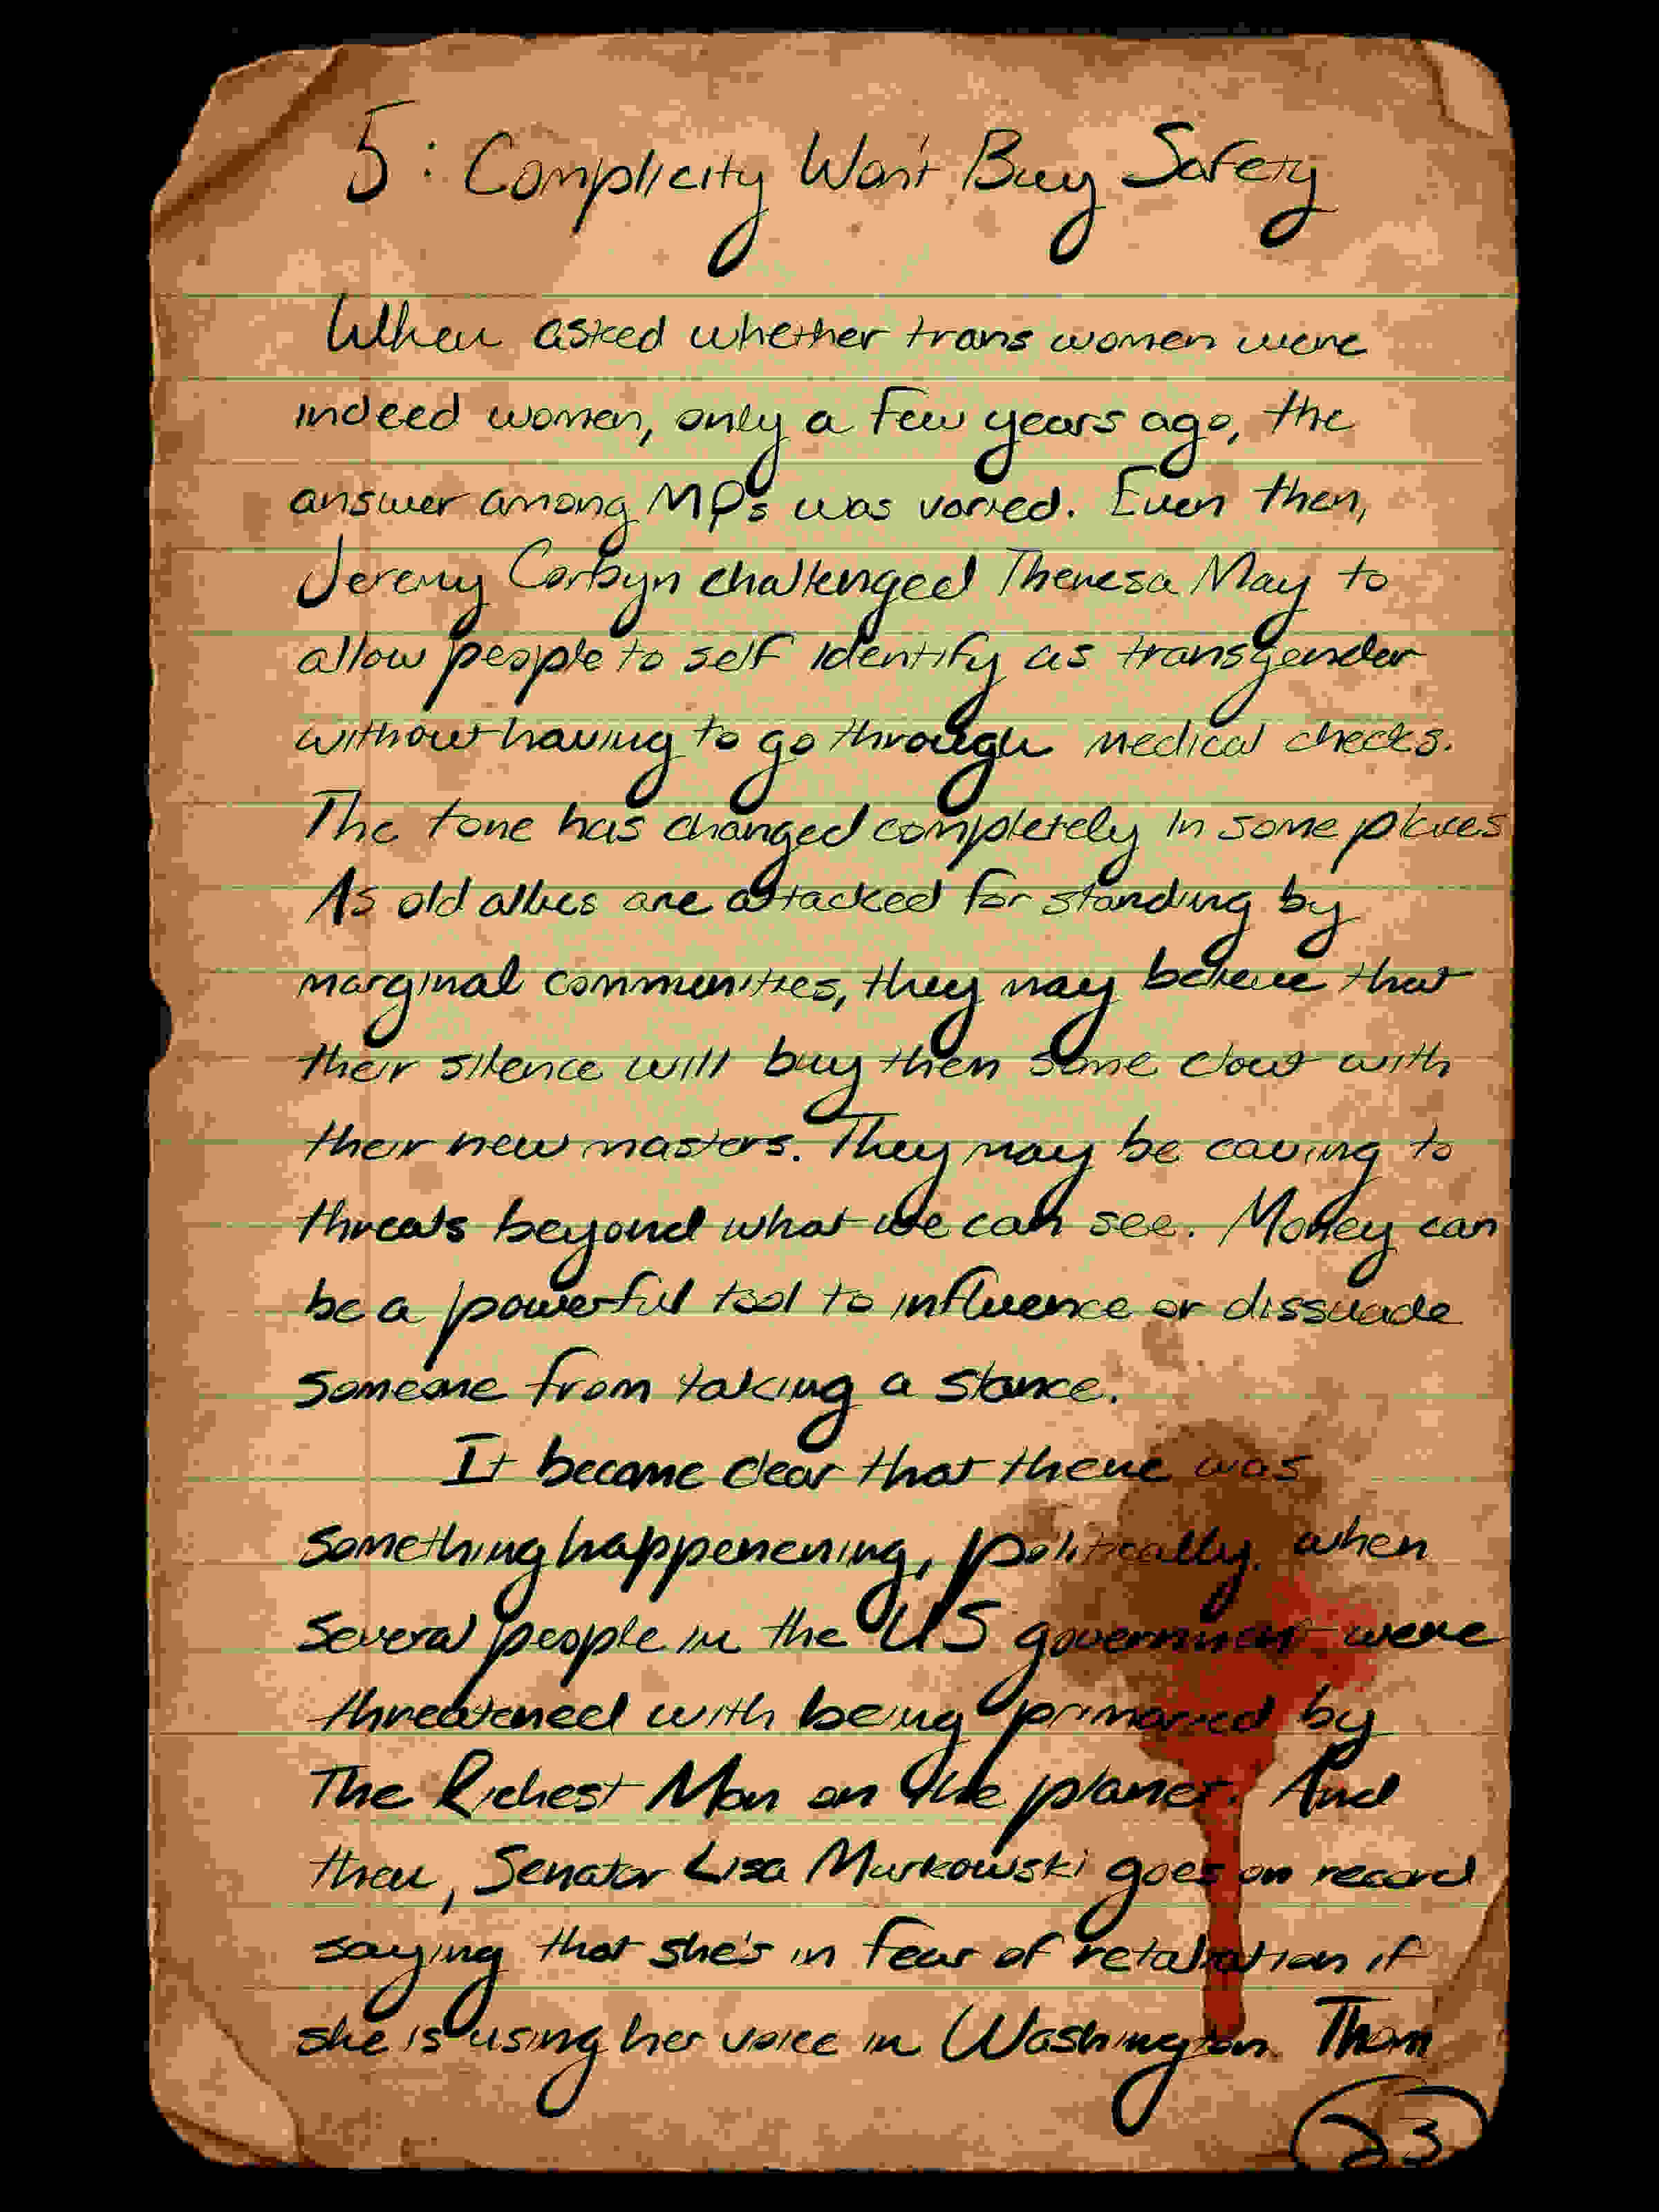 5: Complicity Won't Buy Safety
When asked whether trans women were
indeed women, only a few years ago, the
answer among MPs was varied. Even then,
Jeremy Corbyn challenged Theresa May to
allow people to self identify as transgender
without having to go through medical checks.
The tone has changed completely in some places
As old allies are attacked for standing by
marginal communities, they may believe that
their silence will buy them some clout with
their new masters. They may be caving to
threats beyond what we can see. Money can
be a powerful tool to influence or dissuade
someone from taking a stance.
It became clear that there was
something happenening, politically, when
several people in the US government were
threatened with being primaried by
The Richest Man on the planet. And
then, Senator Lisa Murkowski goes on record
saying that she's in fear of retaliation if
she is using her voice in Washington. Thom
23